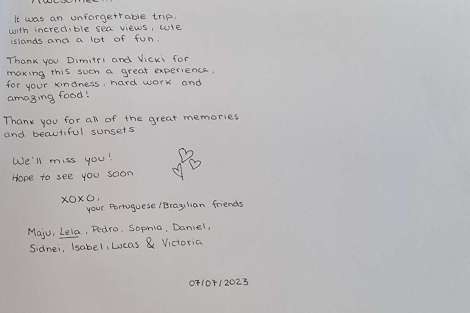 It was an unforgettable trip,
with incredible sea views, cute
islands and a lot of fun.
Thank you Dimitri and Vicki for
making this such a great experience,
for your kindness, hard work and
amazing food!
Thank you for all of the great memories
and beautiful sunsets
We'll miss you!
Hope to see you soon
XOXO,
your Portuguese/Brazilian friends
Maju, Lela, Pedro, Sophia, Daniel,
Sidnei, Isabel, Lucas & Victoria
07/07/2023